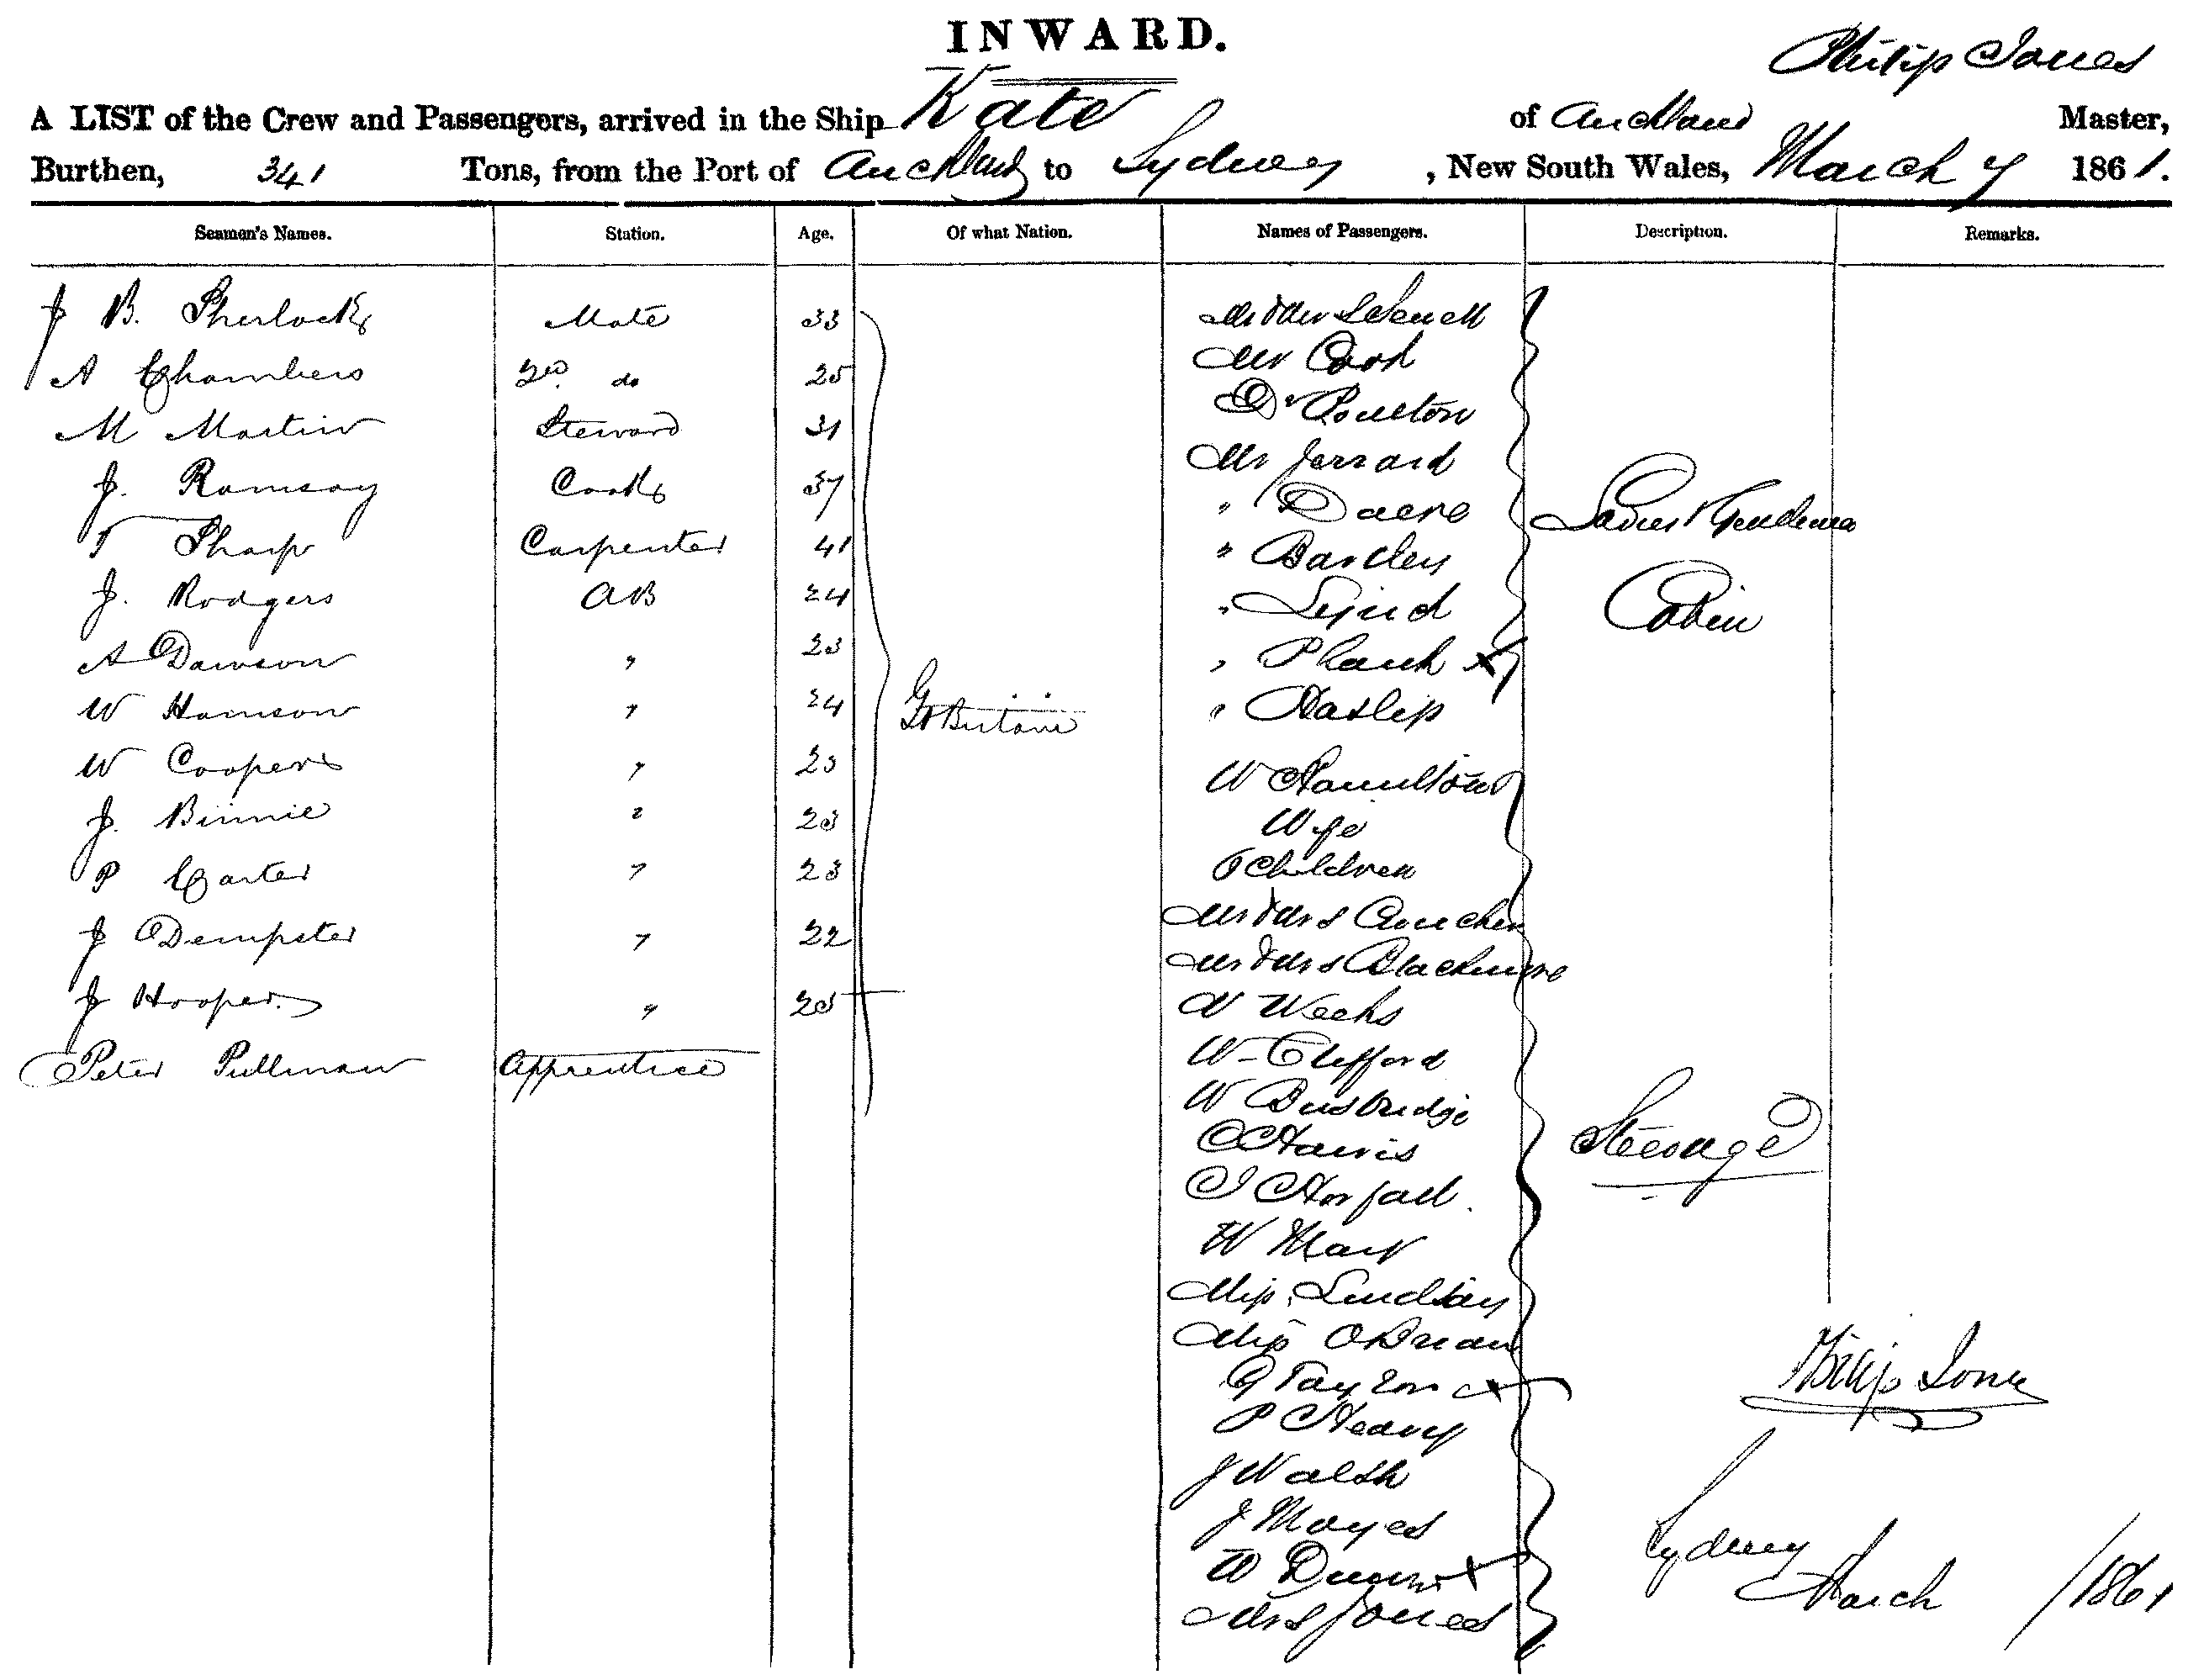 INWARD.
Philip Jones
A LIST of the Crew and Passengers, arrived in the Ship Kate of Auckland Master,
Burthen, 341 Tons, from the Port of Auckland to Sydney, New South Wales, March 7 1861.
Seamen's Names. Station. Age. Of what Nation. Names of Passengers. Description. Remarks.
J B. Sherlock Mate 33
A Chambers 2nd do 25
M Martin Steward 31
J. Ramsay Cook 37
T Sharp Carpenter 41
J. Rodgers AB 24
A Dawson " 23
W Hamson " 24
W Cooper " 23
J. Binnie " 23
P Carter " 23
J Dempster " 22
J Hooper. " 23
Peter Pullman Apprentice
Gt Britain
Mr & Mrs
Mr Cook
Dr Poulton
Mr Jerrard
" Dacre
" Bartley
"
" Plank x
" Haslip
Ladies & Gentlemen
Cabin
W Hamilton
Wife
Children
Mr & Mrs
Mr & Mrs Blackmore
W Weeks
W Clifford
W Busbridge
C Harris
J Horfall.
W Marr
Miss Lindsay
Miss OBrian
G Taylor x
P Heavy
J Walsh
J Mayes
W Dunn x
Mrs Jones
Steerage
Philip Jones
Sydney
March /1861